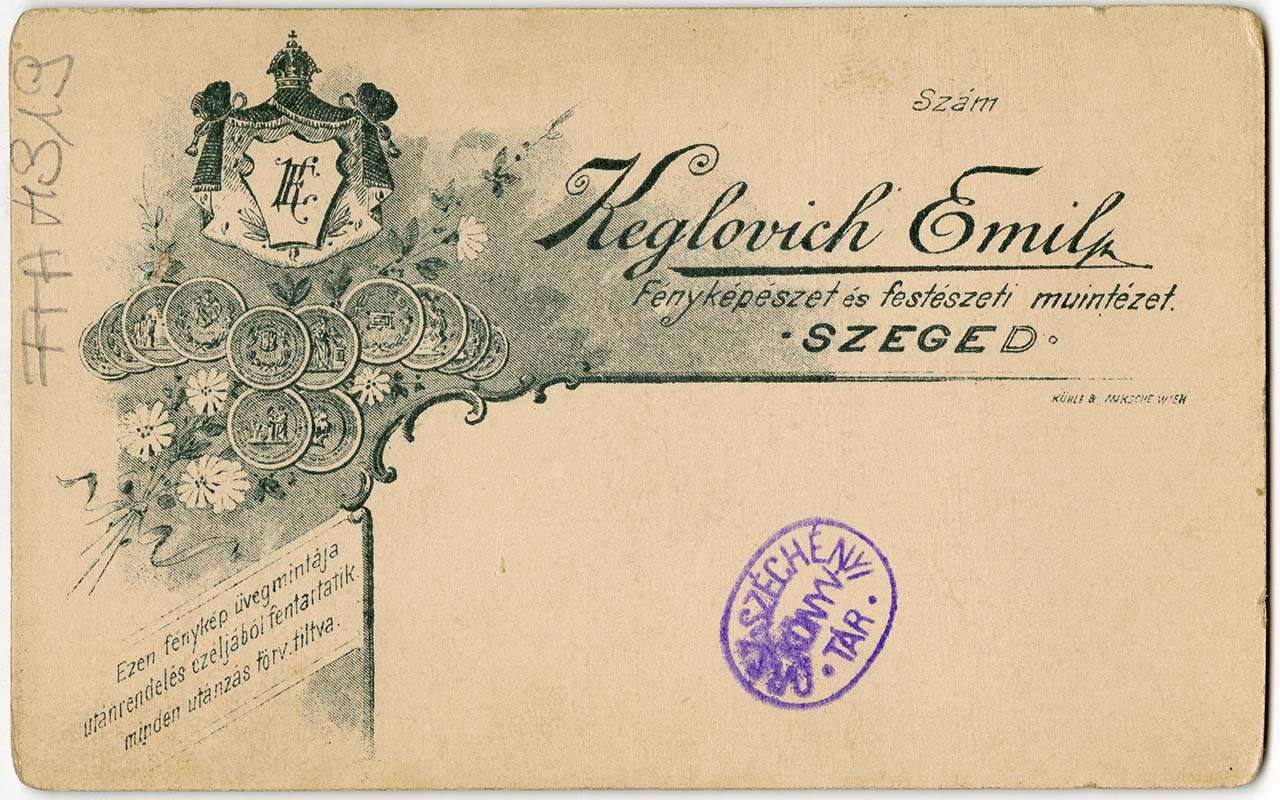 FTA 4319
Szám
KE
Keglovich Emil
Fényképészet és festészeti muintézet.
· SZEGED ·
KÜHLE & MIKSCHE WIEN
Ezen fénykép üvegmintája
utánrendelés czéljából fentartatik.
minden utánzás törv. tiltva.
SZÉCHÉNYI
KÖNYV
· TÁR ·